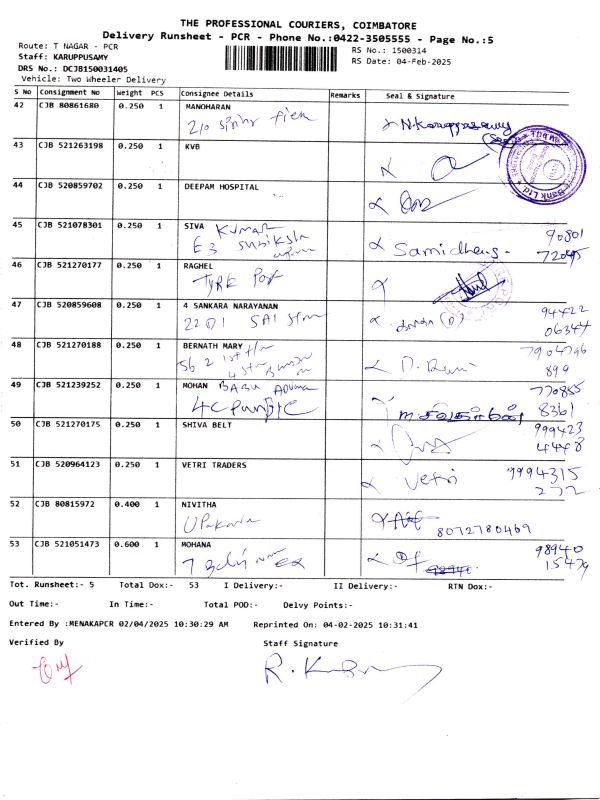 THE PROFESSIONAL COURIERS, COIMBATORE
Delivery Runsheet - PCR - Phone No.:0422-3505555 - Page No.:5
Route: T NAGAR - PCR RS No.: 1500314
Staff: KARUPPUSAMY RS Date: 04-Feb-2025
DRS No.: DCJB150031405
Vehicle: Two Wheeler Delivery
S No Consignment No Weight PCS Consignee Details Remarks Seal & Signature
42 CJB 80861680 0.250 1 MANOHARAN
N.Karuppasamy
43 CJB 521263198 0.250 1 KVB
Bank Ltd
44 CJB 520859702 0.250 1 DEEPAM HOSPITAL
45 CJB 521078301 0.250 1 SIVA KUMAR
E3
72045
46 CJB 521270177 0.250 1 RAGHEL
47 CJB 520859608 0.250 1 4 SANKARA NARAYANAN
2201 SAI
94422
06344
48 CJB 521270188 0.250 1 BERNATH MARY
7904796
899
49 CJB 521239252 0.250 1 MOHAN BABU
4C
770855
8361
50 CJB 521270175 0.250 1 SHIVA BELT
999423
4448
51 CJB 520964123 0.250 1 VETRI TRADERS
Vetri
9994315
272
52 CJB 80815972 0.400 1 NIVITHA
8072780469
53 CJB 521051473 0.600 1 MOHANA
98940
15479
Tot. Runsheet:- 5 Total Dox:- 53 I Delivery:- II Delivery:- RTN Dox:-
Out Time:- In Time:- Total POD:- Delvy Points:-
Entered By :MENAKAPCR 02/04/2025 10:30:29 AM Reprinted On: 04-02-2025 10:31:41
Verified By Staff Signature